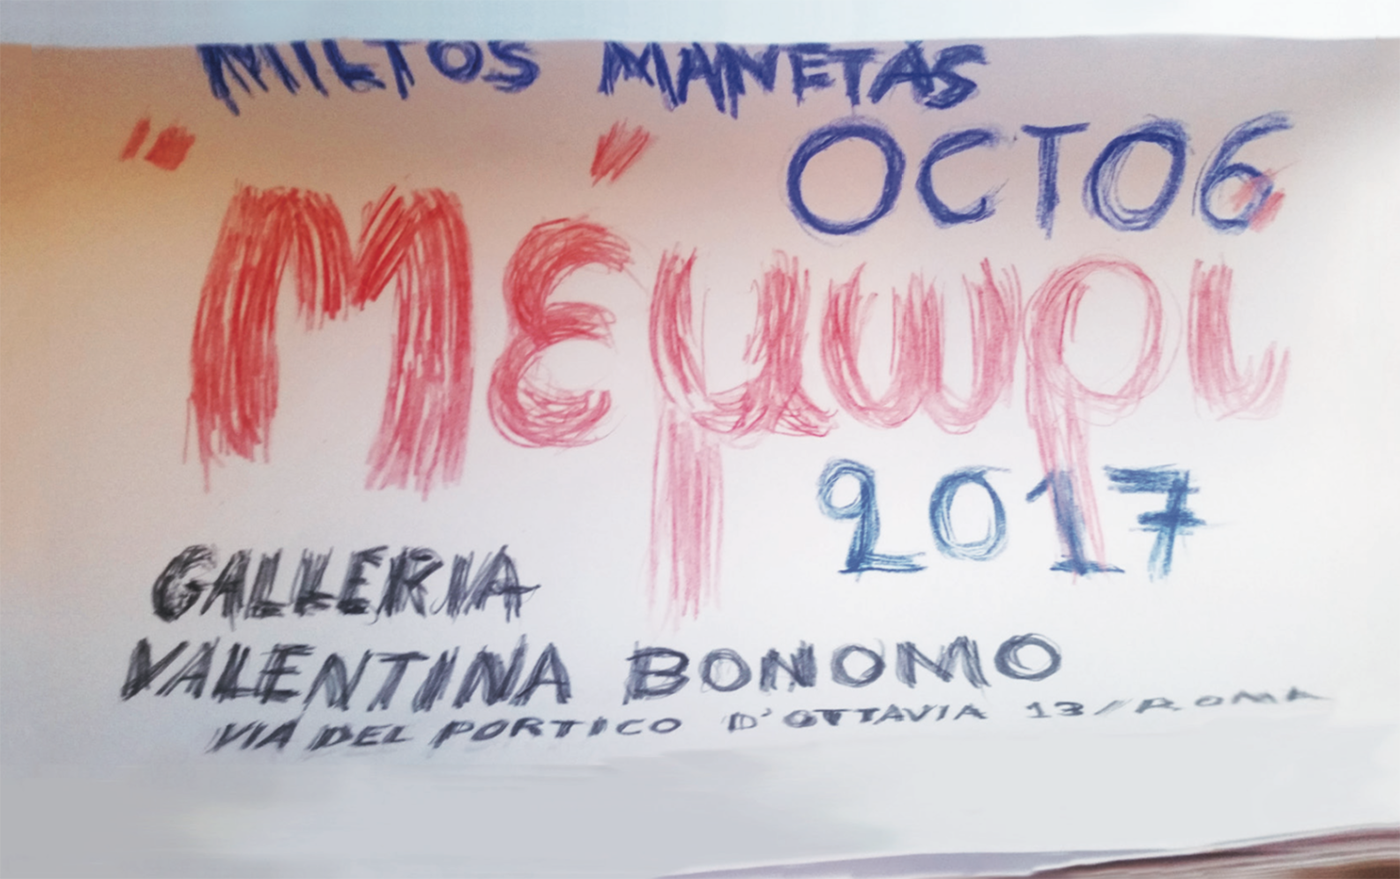 MILTOS MANETAS
OCTO6
"Μέμωρι"
2017
GALLERIA
VALENTINA BONOMO
VIA DEL PORTICO D'OTTAVIA 13/ROMA